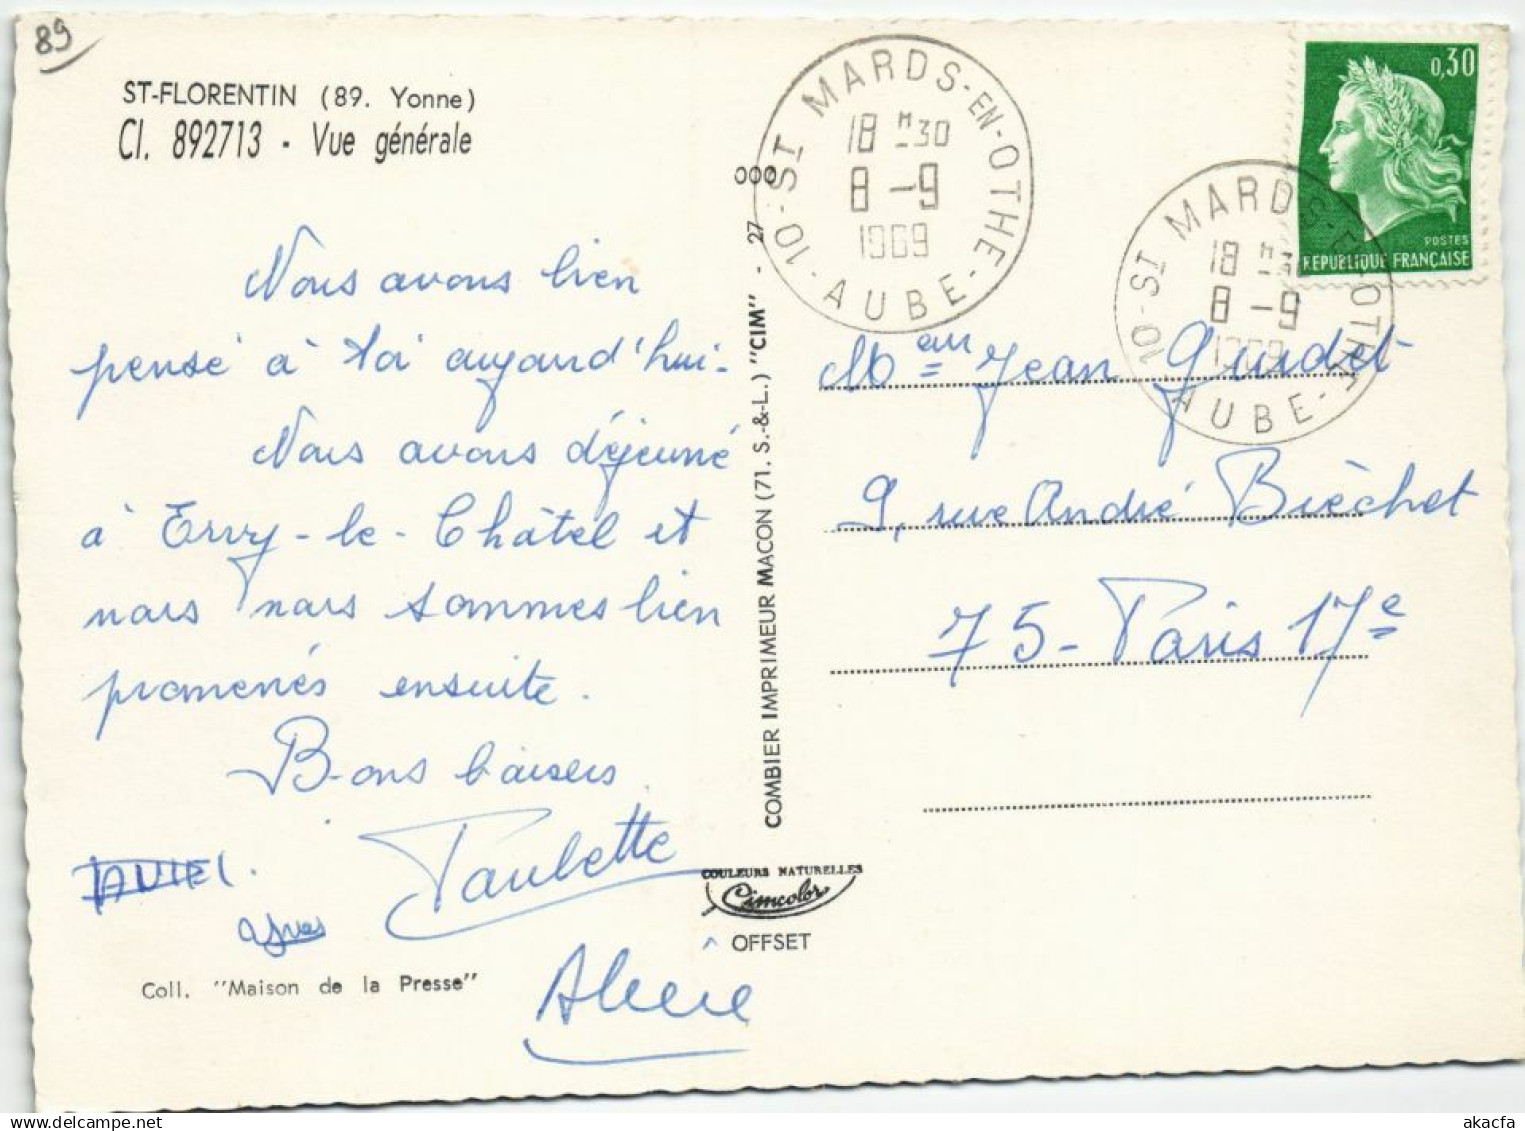 89
ST-FLORENTIN (89. Yonne)
Cl. 892713 - Vue générale
Nous avons bien
pensé à toi aujourd'hui.
Nous avons déjeuné
à Ervy-le-Châtel et
nous nous sommes bien
promenés ensuite.
Bons baisers
Paulette
Yves
Coll. "Maison de la Presse"
000
COMBIER IMPRIMEUR MACON (71. S.-&-L.) "CIM" - 27
COULEURS NATURELLES
Cimcolor
OFFSET
10-ST MARDS-EN-OTHE-AUBE-
18 H 30
8-9
1969
10-ST MARDS-EN-OTHE-AUBE-
18 H 30
8-9
1969
0,30
POSTES
REPUBLIQUE FRANÇAISE
Jean Gundet
9, rue André Brèchet
75-Paris 17e
www.akacfa.com
akacfa